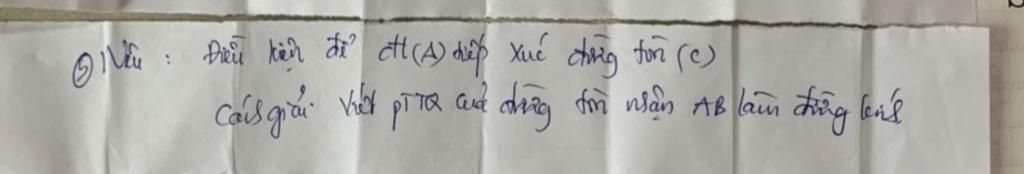 ⑤ Nêu : Điều kiện để đt (A) tiếp xúc đường tròn (C)
Cách giải. Viết pTTQ của đường tròn nhận AB làm đường kính